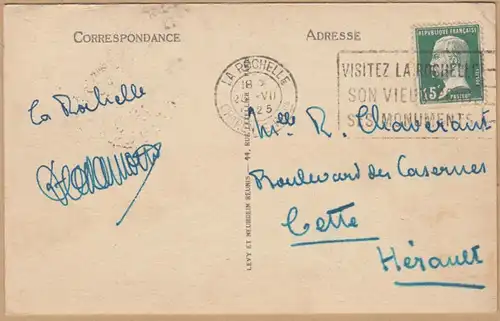 CORRESPONDANCE
ADRESSE
RÉPUBLIQUE FRANÇAISE
15
POSTES
LA ROCHELLE
VII
25
VISITEZ LA ROCHELLE
SON VIEUX
SES MONUMENTS
La Rochelle
Mlle R. Chaverant
Boulevard des Casernes
Cette
Hérault
LEVY ET NEURDEIN RÉUNIS - 44, RUE LETELLIER